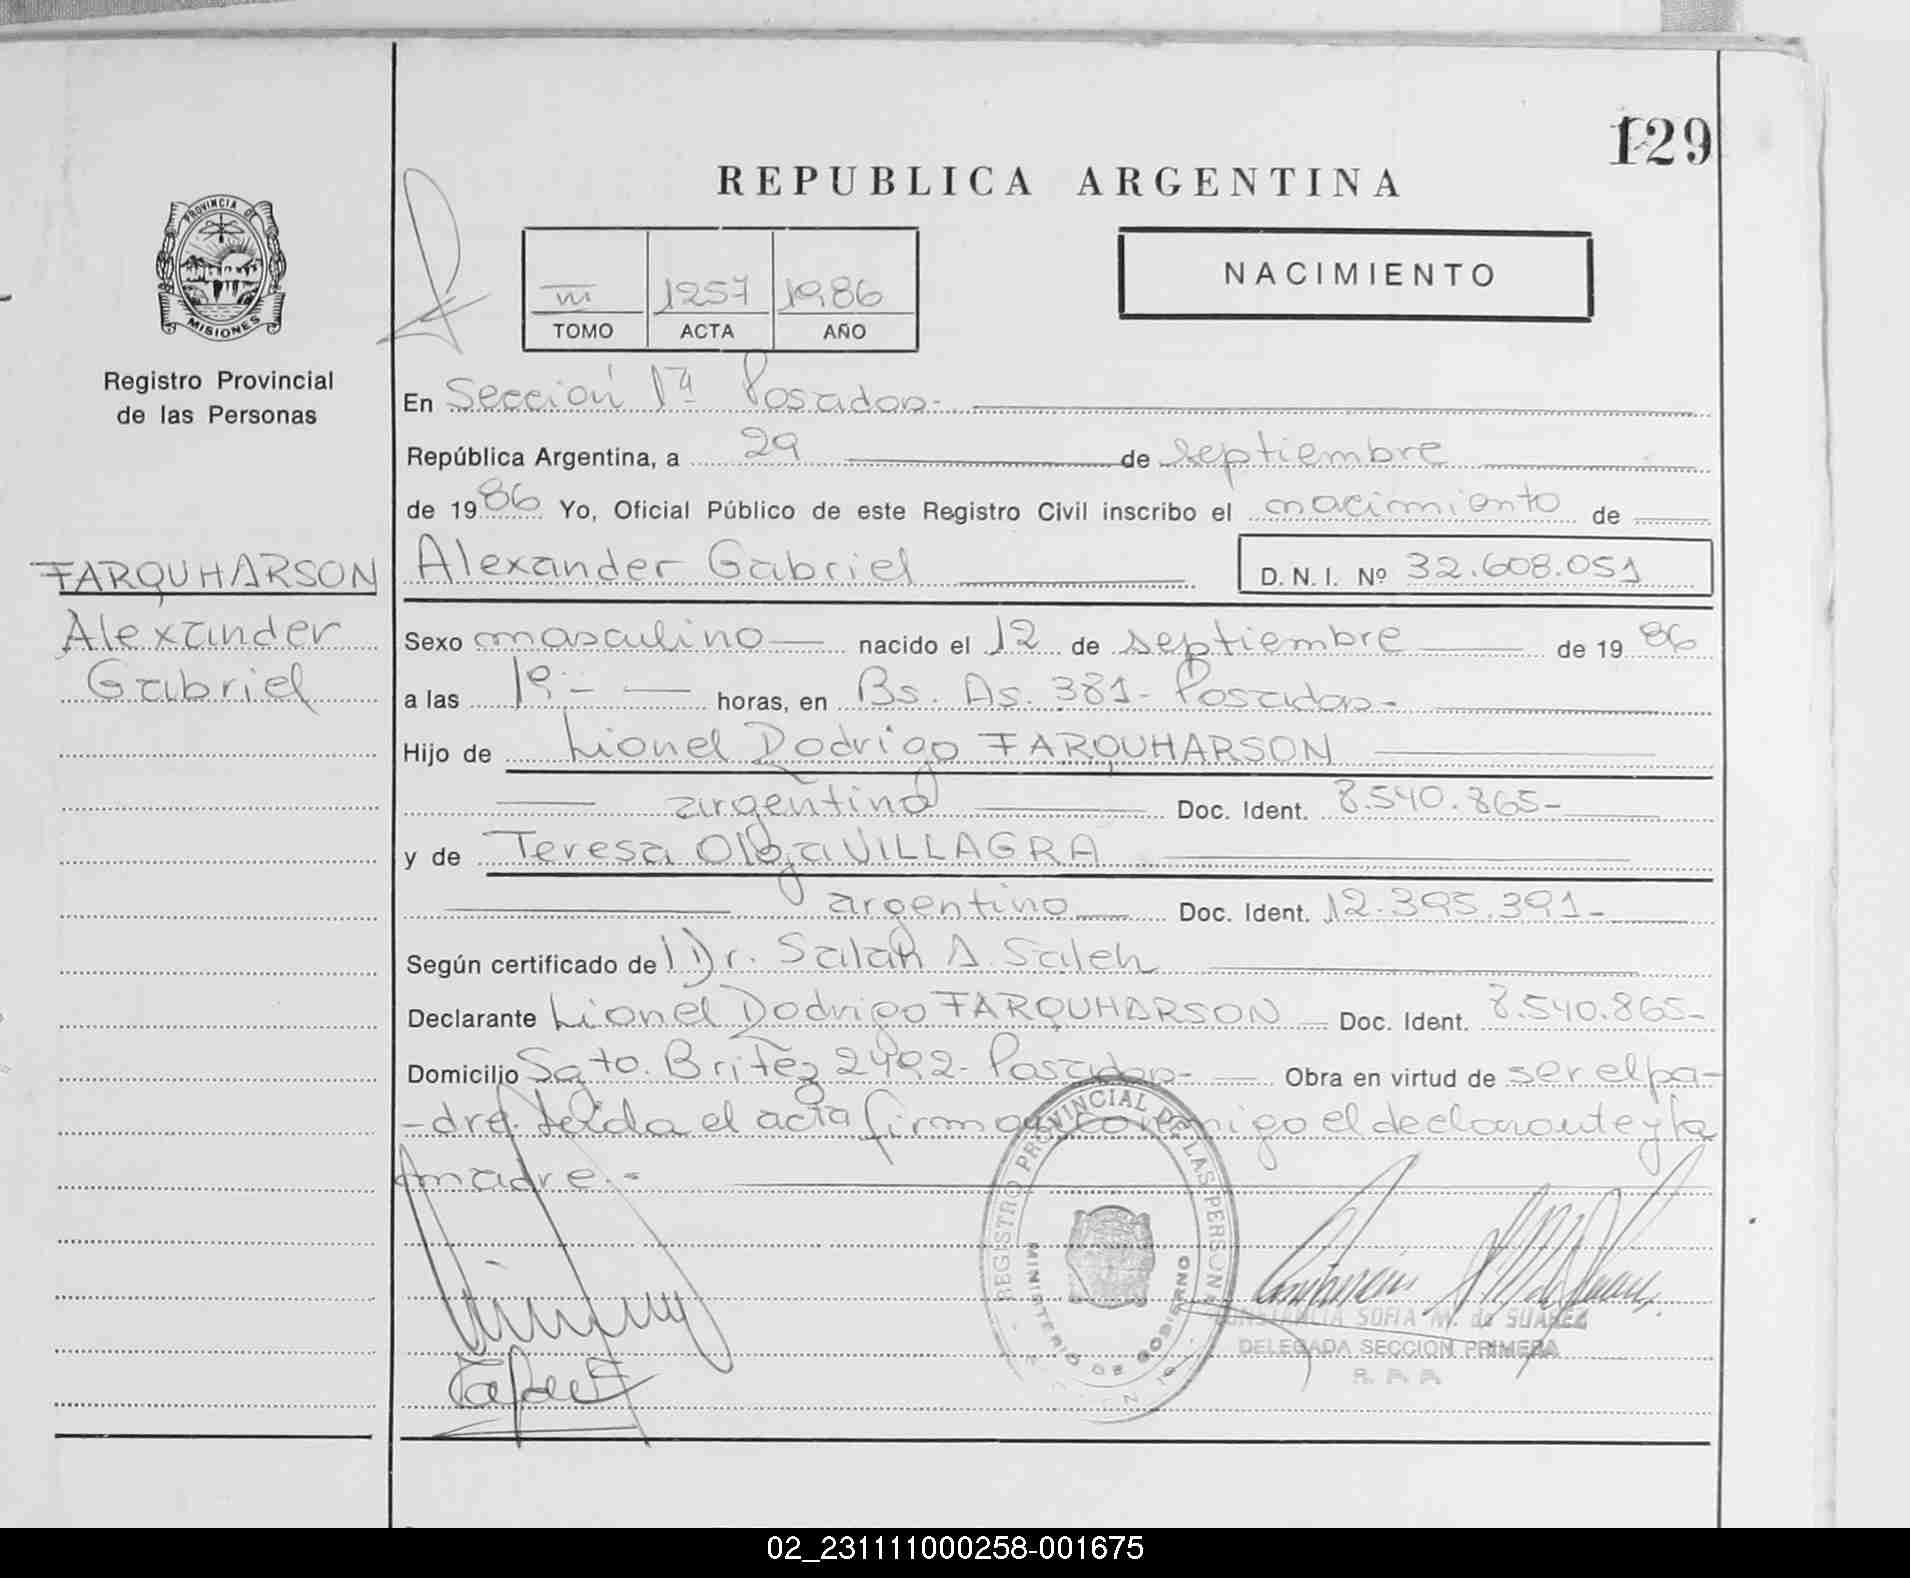 129
REPUBLICA ARGENTINA
PROVINCIA DE
MISIONES
Registro Provincial
de las Personas
III 1257 1986
TOMO ACTA AÑO
NACIMIENTO
En Sección 1ª Posadas-
República Argentina, a 29 de septiembre
de 1986 Yo, Oficial Público de este Registro Civil inscribo el nacimiento de
FARQUHARSON
Alexander
Gabriel
Alexander Gabriel D. N. I. Nº 32.608.051
Sexo masculino nacido el 12 de septiembre de 1986
a las 19- horas, en Bs. As. 381- Posadas-
Hijo de Lionel Rodrigo FARQUHARSON
argentino Doc. Ident. 8.540.865-
y de Teresa Olga VILLAGRA
argentino Doc. Ident. 12.395.391-
Según certificado de Dr. Salah A. Saleh
Declarante Lionel Rodrigo FARQUHARSON Doc. Ident. 8.540.865-
Domicilio Sgto. Britez 2492- Posadas- Obra en virtud de ser el pa-
-dre. Leida el acta firman conmigo el declarante y la
madre.-
REGISTRO PROVINCIAL DE LAS PERSONAS
MINISTERIO DE GOBIERNO
CONSTANCIA SOFIA M. de SUAREZ
DELEGADA SECCION PRIMERA
02_231111000258-001675